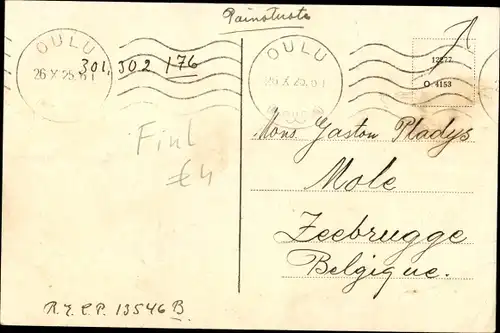 Painotuote
OULU
26 X 25.61
301, 302 176
OULU
26 X 25.61
12877
O. 4153
Finl
£4
Mons. Gaston Pladys
Mole
Zeebrugge
Belgique.
R.Y.C.P. 13546 B